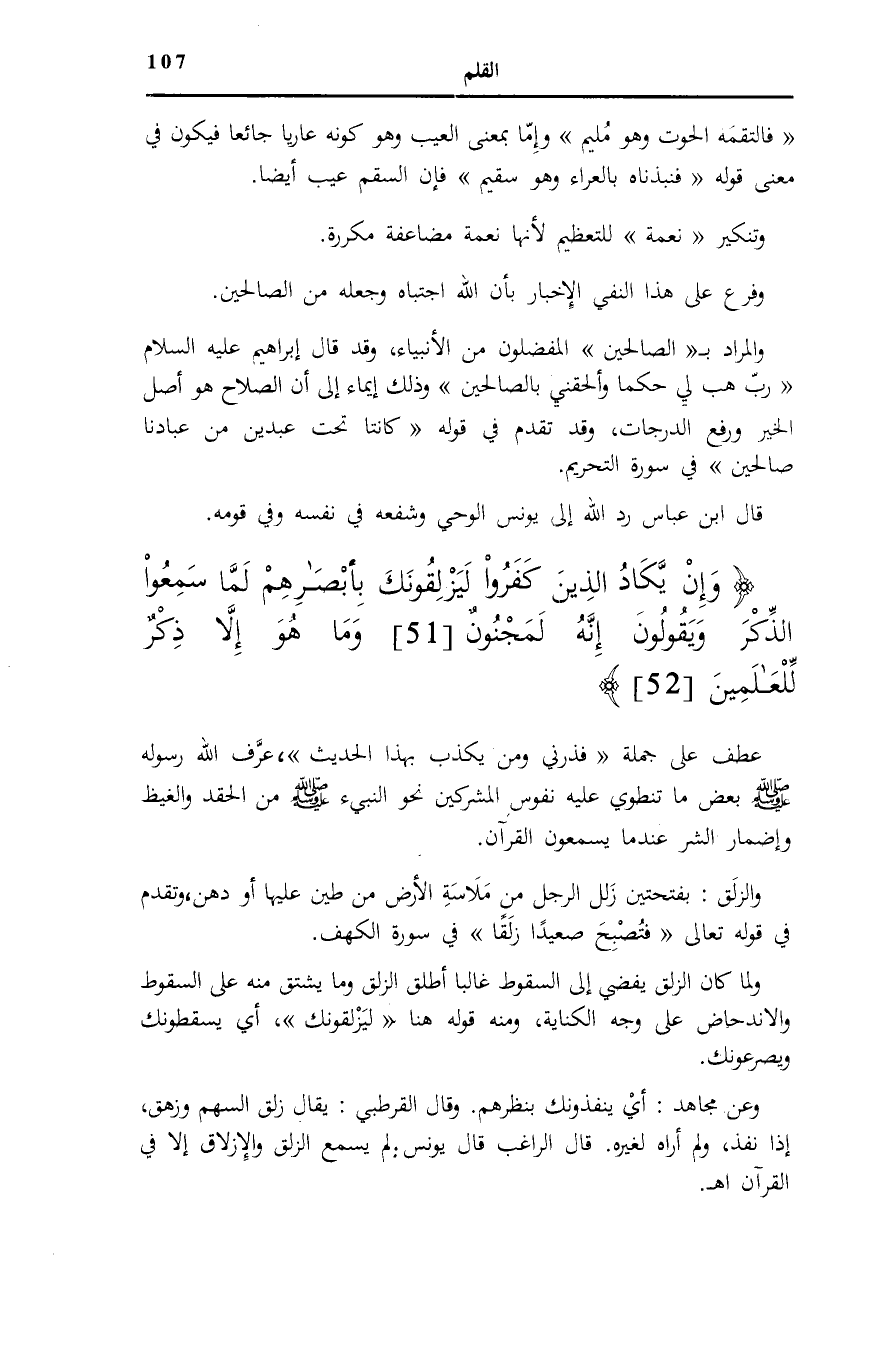 107
القلم
« فالتقمَه الحوت وهو مُليم » وإمّا بمعنى العيب وهو كونه عاريا جائعا فيكون في
معنى قوله « فنبذناه بالعراء وهو سقيم » فإن السقم عيب أيضا.
وتنكير « نعمة » للتعظيم لأنها نعمة مضاعفة مكررة.
وفرع على هذا النفي الإخبار بأن الله اجتباه وجعله من الصالحين.
والمراد بـ« الصالحين » المفضلون من الأنبياء، وقد قال إبراهيم عليه السلام
« ربّ هب لي حكما وألحقني بالصالحين » وذلك إيماء إلى أن الصلاح هو أصل
الخير ورفع الدرجات، وقد تقدم في قوله « كانتا تحت عبدين من عبادنا
صالحين » في سورة التحريم.
قال ابن عباس رد الله إلى يونس الوحي وشفعه في نفسه وفي قومه.
﴿ وَإِنْ يَّكَادُ الذِينَ كَفَرُواْ لَيَزْلِقُونَكَ بِأَبْصَـٰرِهِمْ لَمَّا سَمِعُواْ
الذِّكْرَ وَيَقُولُونَ إِنَّهُ لَمَجْنُونٌ [51] وَمَا هُوَ إِلَّا ذِكْرٌ
لِّلْعَـٰلَمِينَ [52] ﴾
عطف على جملة « فذرني ومن يكذب بهذا الحديث »، عرَّف الله رسوله
ﷺ بعض ما تنطوي عليه نفوس المشركين نحو النبيء ﷺ من الحقد والغيظ
وإضمار الشر عندما يسمعون القرآن.
والزلَق : بفتحتين زَلل الرجل من مَلَاسَةِ الأرض من طين عليها أو دهن، وتقدم
في قوله تعالى « فتُصْبِحَ صعيدًا زلَقًا » في سورة الكهف.
ولما كان الزلق يفضي إلى السقوط غالبا أطلق الزلق وما يشتق منه على السقوط
والاندحاض على وجه الكناية، ومنه قوله هنا « ليَزْلقونك »، أي يسقطونك
ويصرعونك.
وعن مجاهد : أيْ ينفذونك بنظرهم. وقال القرطبي : يقال زلق السهم وزهق،
إذا نفذ، ولم أراه لغيره. قال الراغب قال يونس : لم يسمع الزلق والإزلاق إلا في
القرآن اهـ.